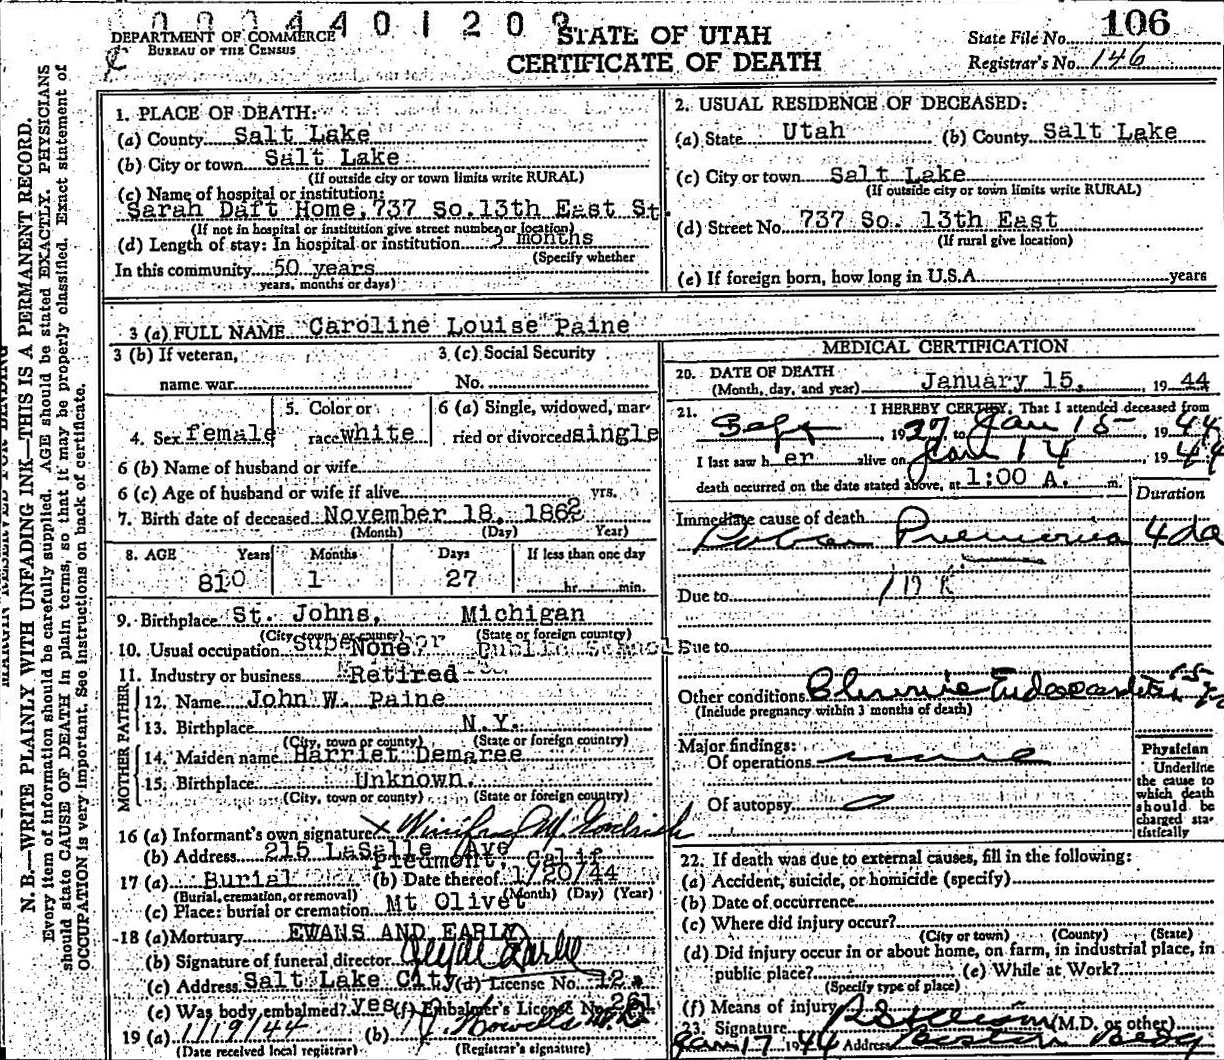 0004401209
DEPARTMENT OF COMMERCE
BUREAU OF THE CENSUS
STATE OF UTAH
CERTIFICATE OF DEATH
State File No. 106
Registrar's No. 146
N. B.—WRITE PLAINLY WITH UNFADING INK—THIS IS A PERMANENT RECORD.
Every item of information should be carefully supplied. AGE should be stated EXACTLY. PHYSICIANS
should state CAUSE OF DEATH in plain terms, so that it may be properly classified. Exact statement of
OCCUPATION is very important. See instructions on back of certificate.
1. PLACE OF DEATH:
(a) County Salt Lake
(b) City or town Salt Lake
(If outside city or town limits write RURAL)
(c) Name of hospital or institution:
Sarah Daft Home, 737 So. 13th East St.
(If not in hospital or institution give street number or location)
(d) Length of stay: In hospital or institution months
(Specify whether
In this community 50 years
years, months or days)
2. USUAL RESIDENCE OF DECEASED:
(a) State Utah (b) County Salt Lake
(c) City or town Salt Lake
(If outside city or town limits write RURAL)
(d) Street No. 737 So. 13th East
(If rural give location)
(e) If foreign born, how long in U.S.A. years
3 (a) FULL NAME Caroline Louise Paine
3 (b) If veteran,
name war
3 (c) Social Security
No.
4. Sex female
5. Color or
race white
6 (a) Single, widowed, mar-
ried or divorced single
6 (b) Name of husband or wife
6 (c) Age of husband or wife if alive yrs.
7. Birth date of deceased November 18, 1862
(Month) (Day) Year)
8. AGE Years Months Days If less than one day
81 1 27 hr. min.
9. Birthplace St. Johns, Michigan
(City, town, or county) (State or foreign country)
10. Usual occupation None
11. Industry or business Retired
FATHER
12. Name John W. Paine
13. Birthplace N.Y.
(City, town or county) (State or foreign country)
MOTHER
14. Maiden name Harriet Demaree
15. Birthplace Unknown
(City, town or county) (State or foreign country)
16 (a) Informant's own signature x Winifred M. Goodrich
(b) Address 215 LaSalle Ave
Piedmont, Calif
17 (a) Burial (b) Date thereof 1/20/44
(Burial, cremation, or removal) (Month) (Day) (Year)
(c) Place: burial or cremation Mt Olivet
18 (a) Mortuary EWANS AND EARLY
(b) Signature of funeral director Clyde Early
(c) Address Salt Lake City (d) License No. 12
(e) Was body embalmed? yes (f) Embalmer's License No. 261
19 (a) 1/19/44 (b)
(Date received local registrar) (Registrar's signature)
MEDICAL CERTIFICATION
20. DATE OF DEATH
(Month, day, and year) January 15, 19 44
21. I HEREBY CERTIFY, That I attended deceased from
Sept, 1927 to Jan 15, 19 44
I last saw h er alive on Jan 14, 19 44
death occurred on the date stated above, at 1:00 A. m.
Duration
Immediate cause of death
Lobar Pneumonia 4 da
Due to
Due to
Other conditions Chronic Endocarditis 15 yrs
(Include pregnancy within 3 months of death)
Major findings:
Of operations none
Of autopsy 0
Physician
Underline
the cause to
which death
should be
charged sta-
tistically
22. If death was due to external causes, fill in the following:
(a) Accident, suicide, or homicide (specify)
(b) Date of occurrence
(c) Where did injury occur?
(City or town) (County) (State)
(d) Did injury occur in or about home, on farm, in industrial place, in
public place? (e) While at Work?
(Specify type of place)
(f) Means of injury
23. Signature (M.D. or other)
Jan 17 1944 Address Boston Bldg